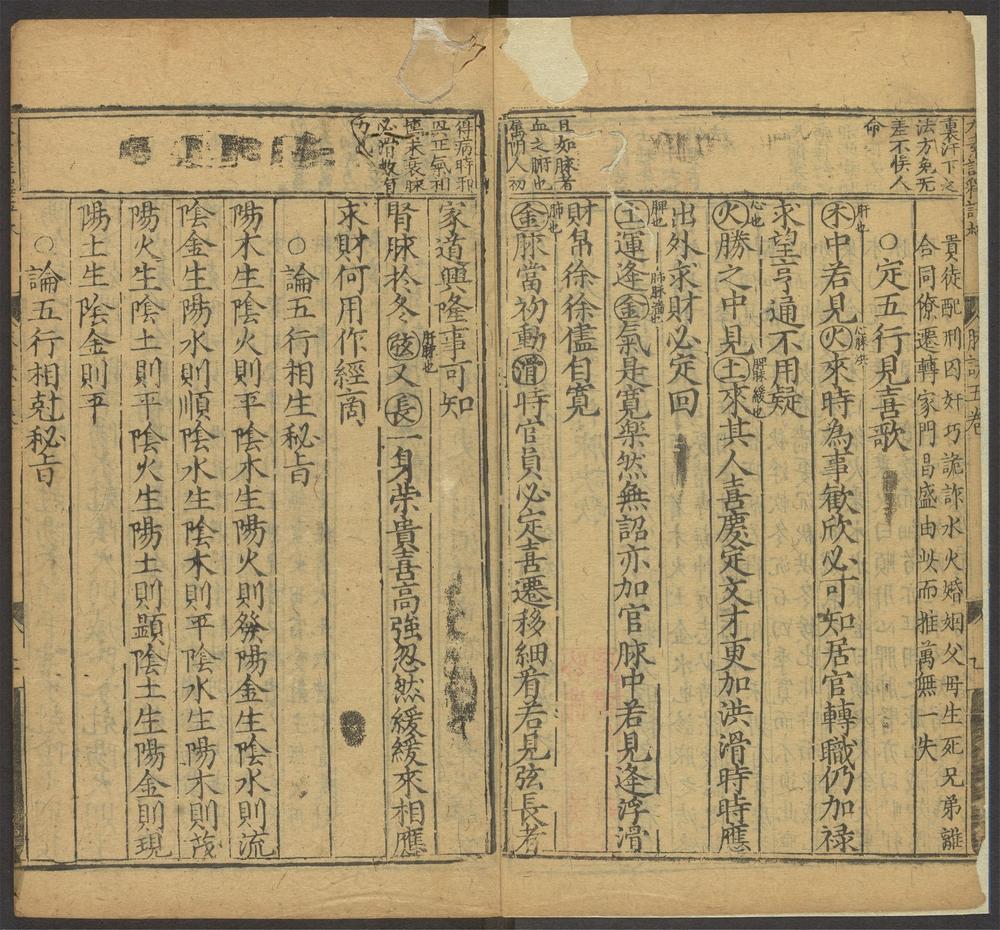 裏汗下之
法方免无
差不悮人
命
貴徒配刑囚奸巧詭詐水火婚姻父母生死兄弟離
合同僚遷轉家門昌盛由此而推萬無一失
○定五行見喜歌
肝也
心脉洪
木中若見火來時為事歡欣必可知居官轉職仍加禄
求望亨通不用疑
心也
脾脉緩也
火勝之中見土來其人喜慶定文才更加洪滑時時應
出外求財必定回
脾也
肺脉濇也
土運逢金氣是寛樂然無詔亦加官脉中若見逢浮滑
財帛徐徐儘自寛
且如脉者
血之腑也
萬明人初
肺也
金脉當初動滑時官員必定喜遷移細看若見弦長者
得病時和
與正氣相
博未衰脉
必滑數有
力也
家道興隆事可知
肝脉也
腎脉於冬弦又長一身荣貴喜高強忽然緩緩來相應
求財何用作經商
○論五行相生秘旨
陽木生陰火則平陰木生陽火則發陽金生陰水則流
陰金生陽水則順陰水生陰木則平陰水生陽木則茂
陽火生陰土則平陰火生陽土則顯陰土生陽金則現
陽土生陰金則平
○論五行相尅秘旨